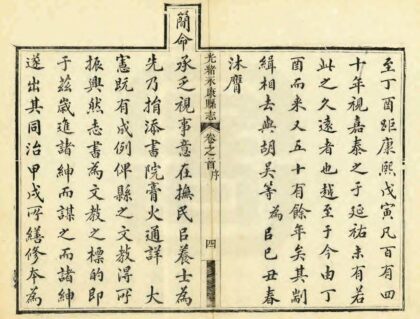 至丁酉距康熙戊寅凡百有四
十年視嘉泰之于延祐未有若
此之久遠者也越至于今由丁
酉而来又五十有餘年矣其
緝相去與胡吳等為㠯己丑春
沐膺
光緒永康縣志
卷之首序
四
簡命
承乏視事意在撫民㠯養士為
先乃捐添書院膏火通詳 大
憲既有成例俾縣之文教得所
振興然志書為文教之標的即
于茲歲進諸紳而謀之而諸紳
遂出其同治甲戌所繕修本為